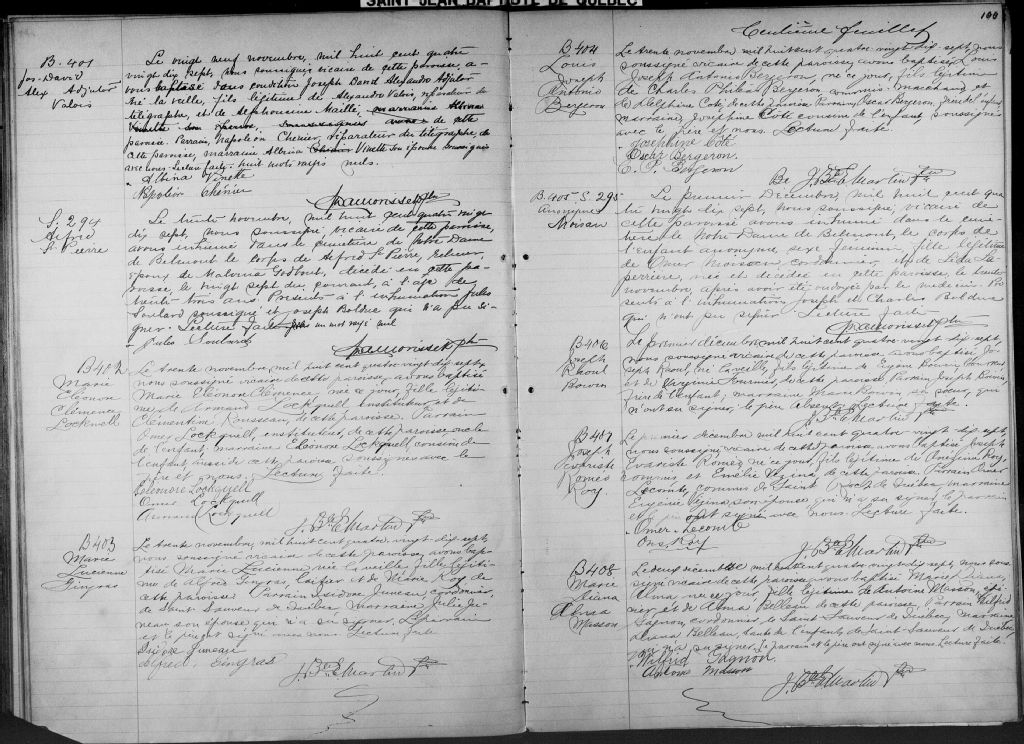 SAINT JEAN BAPTISTE DE QUÉBEC
B. 401
Jos. David
Alex Adjutor
Valois
Le vingt neuf novembre, mil huit cent quatre
vingt dix sept, nous soussigné vicaire de cette paroisse, a-
vons baptisé sous condition Joseph David Alexandre Adjutor
né la veille, fils légitime de Alexandre Valois, réparateur de
télégraphe, et de Alphonsine Maillé, marraine Albina
Vinette son épouse, de cette
paroisse. Parrain, Napoléon Chénier, réparateur de télégraphe, de
cette paroisse, marraine Albina Chénier Vinette son épouse soussignés
avec nous. Lecture faite. huit mots rayés nuls.
Albina Vinette
Napoléon Chénier
S. 294
Alfred
St Pierre
Le trente novembre, mil huit cent quatre vingt
dix sept, nous soussigné vicaire de cette paroisse,
avons inhumé dans le cimetière de Notre Dame
de Belmont le corps de Alfred St Pierre, relieur,
époux de Malvina Godbout, décédé en cette pa-
roisse, le vingt sept du courant, à l'age de
trente trois ans. Présents à l'inhumation Jules
Soulard soussigné et Joseph Bolduc qui n'a pu si-
gner. Lecture faite un mot rayé nul
Jules Soulard
B 402
Marie
Eléonore
Clémence
Lockwell
Le trente novembre, mil huit cent quatre vingt dix sept,
nous soussigné vicaire de cette paroisse, avons baptisé
Marie Eléonore Clémence, née ce jour, fille légiti-
me de Armand Lockquell, instituteur et de
Clémentine Rousseau, de cette paroisse. Parrain
Omer Lockquell, instituteur, de cette paroisse oncle de
l'enfant; marraine Eléonore Lockquell cousine de
l'enfant aussi de cette paroisse soussignés avec le
père et nous. Lecture faite.
Eléonore Lockquell
Omer Lockquell
Armand Lockquell
J. Bte E. Martin Ptre
B 403
Marie
Lucienne
Gingras
Le trente novembre mil huit cent quatre vingt dix sept,
nous soussigné vicaire de cette paroisse, avons bap-
tisé Marie Lucienne, née la veille, fille légiti-
me de Alfred Gingras, et de Marie Roy de
cette paroisse. Parrain Isidore Juneau cordonnier,
de Saint Sauveur de Québec, marraine Julie Ju-
neau son épouse qui n'a su signer. Le parrain
et le père ont signé avec nous. Lecture faite
Isidore Juneau
Alfred Gingras
J. Bte E. Martin Ptre
100
Centième feuillet
B 404
Louis
Joseph
Antonio
Bergeron
Le trente novembre mil huit cent quatre vingt dix sept, nous
soussigné vicaire de cette paroisse, avons baptisé Louis
Joseph Antonio Bergeron, né ce jour, fils légitime
de Charles Bergeron, commis-marchand et
de Delphine Coté, de cette paroisse. Parrain Oscar Bergeron,
marraine, Joséphine Coté cousine de l'enfant, soussignés
avec le père et nous. Lecture faite.
Joséphine Coté
Oscar Bergeron
C. P. Bergeron
J. Bte E. Martin Ptre
B. 405 S. 295
Anonyme
Moisan
Le premier décembre, mil huit cent qua-
tre vingt dix sept, nous soussigné, vicaire de
cette paroisse avons inhumé dans le cime-
tière de Notre Dame de Belmont, le corps de
l'enfant anonyme, sexe féminin, fille légitime
de Omer Moisan, cordonnier, et de Lida La-
perrière, née et décédée en cette paroisse, le trente
novembre, après avoir été ondoyée par le médecin. Pré-
sents à l'inhumation Joseph et Charles Bolduc
qui n'ont pu signer. Lecture faite
B 406
Joseph
Raoul
Boivin
Le premier décembre mil huit cent quatre vingt dix sept,
nous soussigné vicaire de cette paroisse avons baptisé Jo-
seph Raoul, né la veille, fils légitime de Boivin,
et de Virginie Fournier, de cette paroisse. Parrain Joseph Boivin
frère de l'enfant; marraine Marie Boivin sa soeur, qui
n'ont su signer; le père absent. Lecture faite.
J. Bte E. Martin Ptre
B 407
Joseph
Evariste
Roméo
Roy
Le premier décembre mil huit cent quatre vingt dix sept,
nous soussigné vicaire de cette paroisse avons baptisé Joseph
Evariste Roméo né ce jour, fils légitime de Onésime Roy,
commis et Emélie Vézina de cette paroisse. Parrain Omer
Lecomte, commis de Saint Roch de Québec, marraine
Eugénie Vézina son épouse qui n'a su signer, le parrain
et le père ont signé avec nous. Lecture faite.
Omer Lecomte
Ons. Roy
J. Bte E. Martin Ptre
B 408
Marie
Diana
Alma
Masson
Le deux décembre mil huit cent quatre vingt dix sept, nous sous-
signé vicaire de cette paroisse avons baptisé Marie Diana
Alma née ce jour, fille légitime de Antoine Masson, épi-
cier et de Alma Belleau de cette paroisse. Parrain Wilfrid
Gagnon, cordonnier de Saint Sauveur de Québec, marraine
Diana Belleau, tante de l'enfant, de Saint-Sauveur de Québec,
qui n'a su signer; le parrain et le père ont signé avec nous. Lecture faite.
Wilfrid Gagnon
Antoine Masson
J. Bte E. Martin Ptre